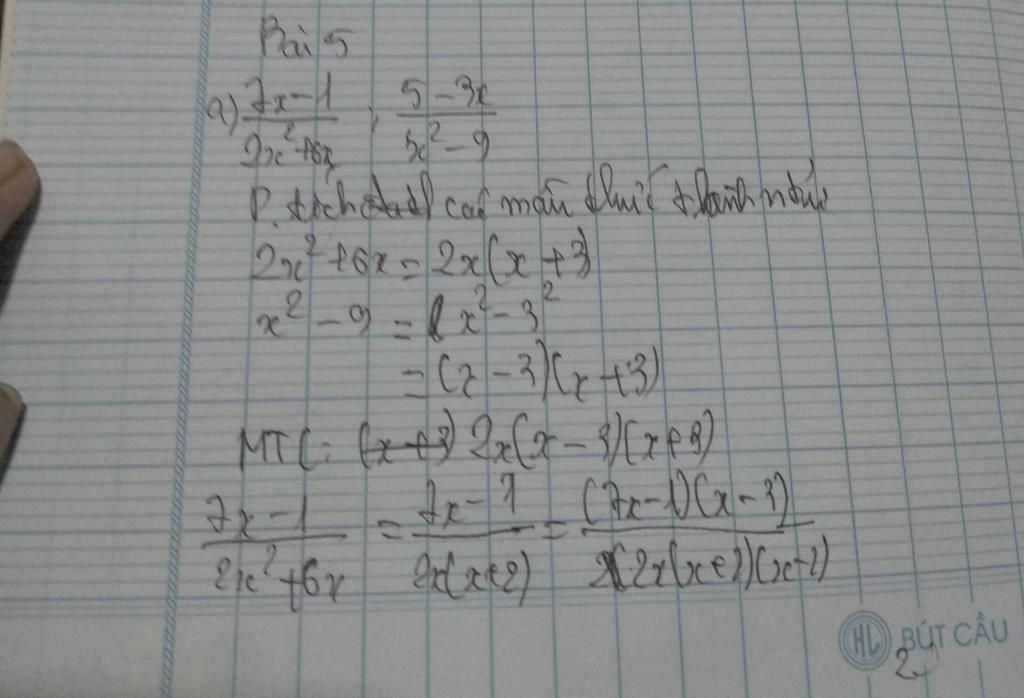 Bài 5
a) \frac{7x-1}{2x^2+6x} ; \frac{5-3x}{x^2-9}
P. tích các mẫu thức thành ntử
2x^2+6x = 2x(x+3)
x^2-9 = x^2-3^2
= (x-3)(x+3)
MTC: 2x(x-3)(x+3)
\frac{7x-1}{2x^2+6x} = \frac{7x-1}{2x(x+3)} = \frac{(7x-1)(x-3)}{2x(x+3)(x-3)}
HL BÚT CẦU